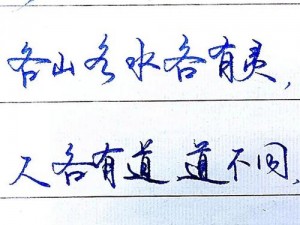 各山各水各有灵,
人各有道道不同,